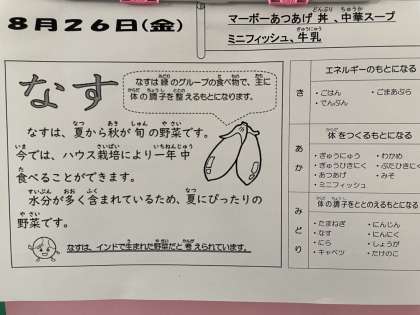 8月26日(金)
マーボーあつあげ丼、中華スープ
ミニフィッシュ、牛乳
なす
なすは緑のグループの食べ物で、主に
体の調子を整えるもとになります。
なすは、夏から秋が旬の野菜です。
今では、ハウス栽培により一年中
食べることができます。
水分が多く含まれているため、夏にぴったりの
野菜です。
なすは、インドで生まれた野菜だと考えられています。
エネルギーのもとになる
き
・ごはん ・ごまあぶら
・でんぷん
体をつくるもとになる
あか
・ぎゅうにゅう ・わかめ
・ぎゅうひきにく ・ぶたひきにく
・あつあげ ・みそ
・ミニフィッシュ
体の調子をととのえるもとになる
みどり
・たまねぎ ・にんじん
・なす ・にんにく
・にら ・しょうが
・キャベツ ・たけのこ